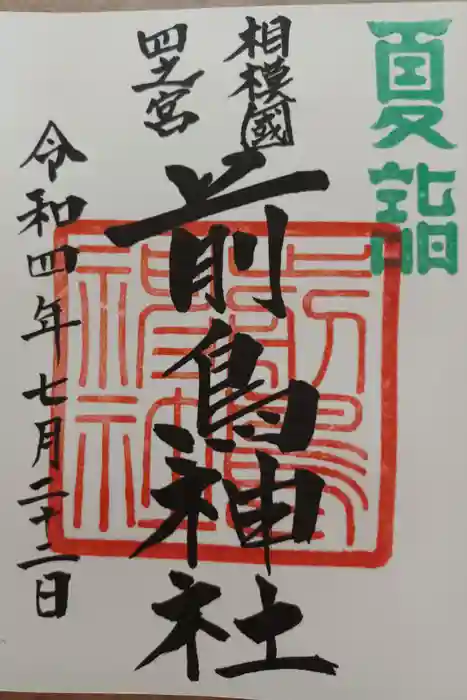 夏詣
相模國
四之宮
前鳥神社
令和四年七月二十二日